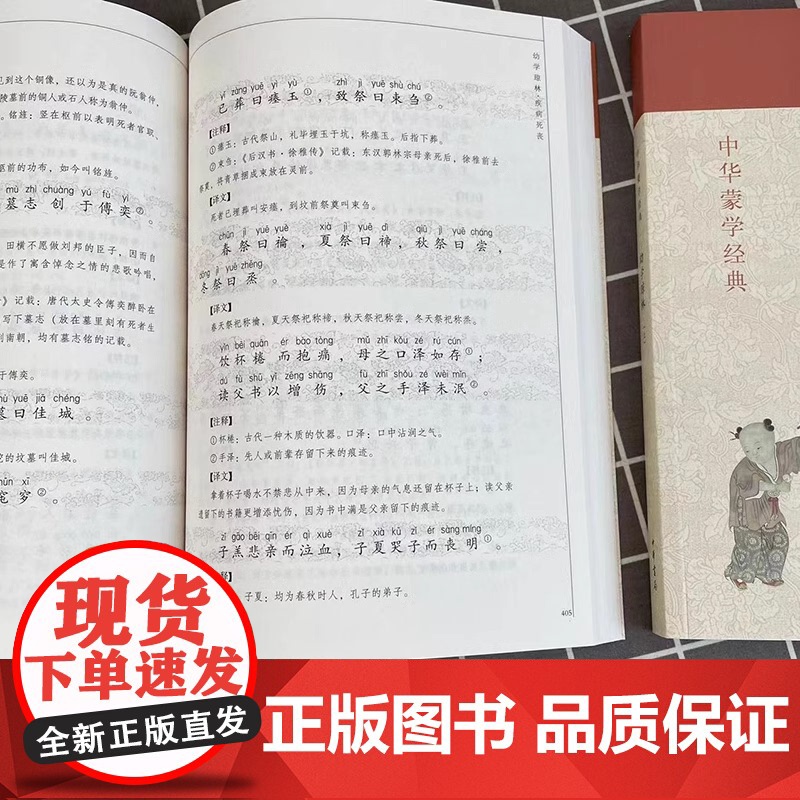 见到这个铜像，还以为是真的阮翁仲，
陵墓前的铜人或石人称为翁仲。
铭旌：竖在柩前以表明死者官职、
柩前的功布，如今叫铭旌。
mù zhì chuàng yú fù yì
墓志创于傅奕②。
田横不愿做刘邦的臣子，因而自
是作了寓含悼念之情的悲歌吟唱，
》记载：唐代太史令傅奕醉卧在
写下墓志（放在墓里刻有死者生
到南朝，均有墓志铭的记载。
于傅奕。
mù yuē jiā chéng
墓曰佳城。
的坟墓叫佳城。
zhūn xī
窀穸②。
幼学琼林·疾病死丧
yǐ zàng yuē yì yù zhì jì yuē shù chú
已葬曰瘗玉①，致祭曰束刍②。
【注释】
①瘗玉：古代祭山，礼毕埋玉于坑，称瘗玉。后指下葬。
②束刍：《后汉书·徐稚传》记载：东汉郭林宗母亲死后，徐稚前去
吊夏，将青草捆成束放在灵前。
【译文】
死者已埋葬叫安瘗，到坟前祭奠叫束刍。
chūn jì yuē yuè xià jì yuē dì qiū jì yuē cháng
春祭曰禴，夏祭曰禘，秋祭曰尝，
dōng jì yuē zhēng
冬祭曰烝。
【译文】
春天祭祀称禴，夏天祭祀称禘，秋天祭祀称尝，冬天祭祀称烝。
yǐn bēi quān ér bào tòng mǔ zhī kǒu zé rú cún
饮杯棬而抱痛，母之口泽如存①；
dú fù shū yǐ zēng shāng fù zhī shǒu zé wèi mǐn
读父书以增伤，父之手泽未泯②。
【注释】
①杯棬：古代一种木质的饮器。口泽：口中沾润之气。
②手泽：先人或前辈存留下来的痕迹。
【译文】
拿着杯子喝水不禁悲从中来，因为母亲的气息还留在杯子上；读父亲
遗留下的书籍更增添忧伤，因为书中满是父亲留下的痕迹。
zǐ gāo bēi qīn ér qì xuè zǐ xià kū zǐ ér sàng míng
子羔悲亲而泣血，子夏哭子而丧明①。
子夏：均为春秋时人，孔子的弟子。
405
中华蒙学经典
现货
下单速发
全新正版直发
正版图书 品质保证